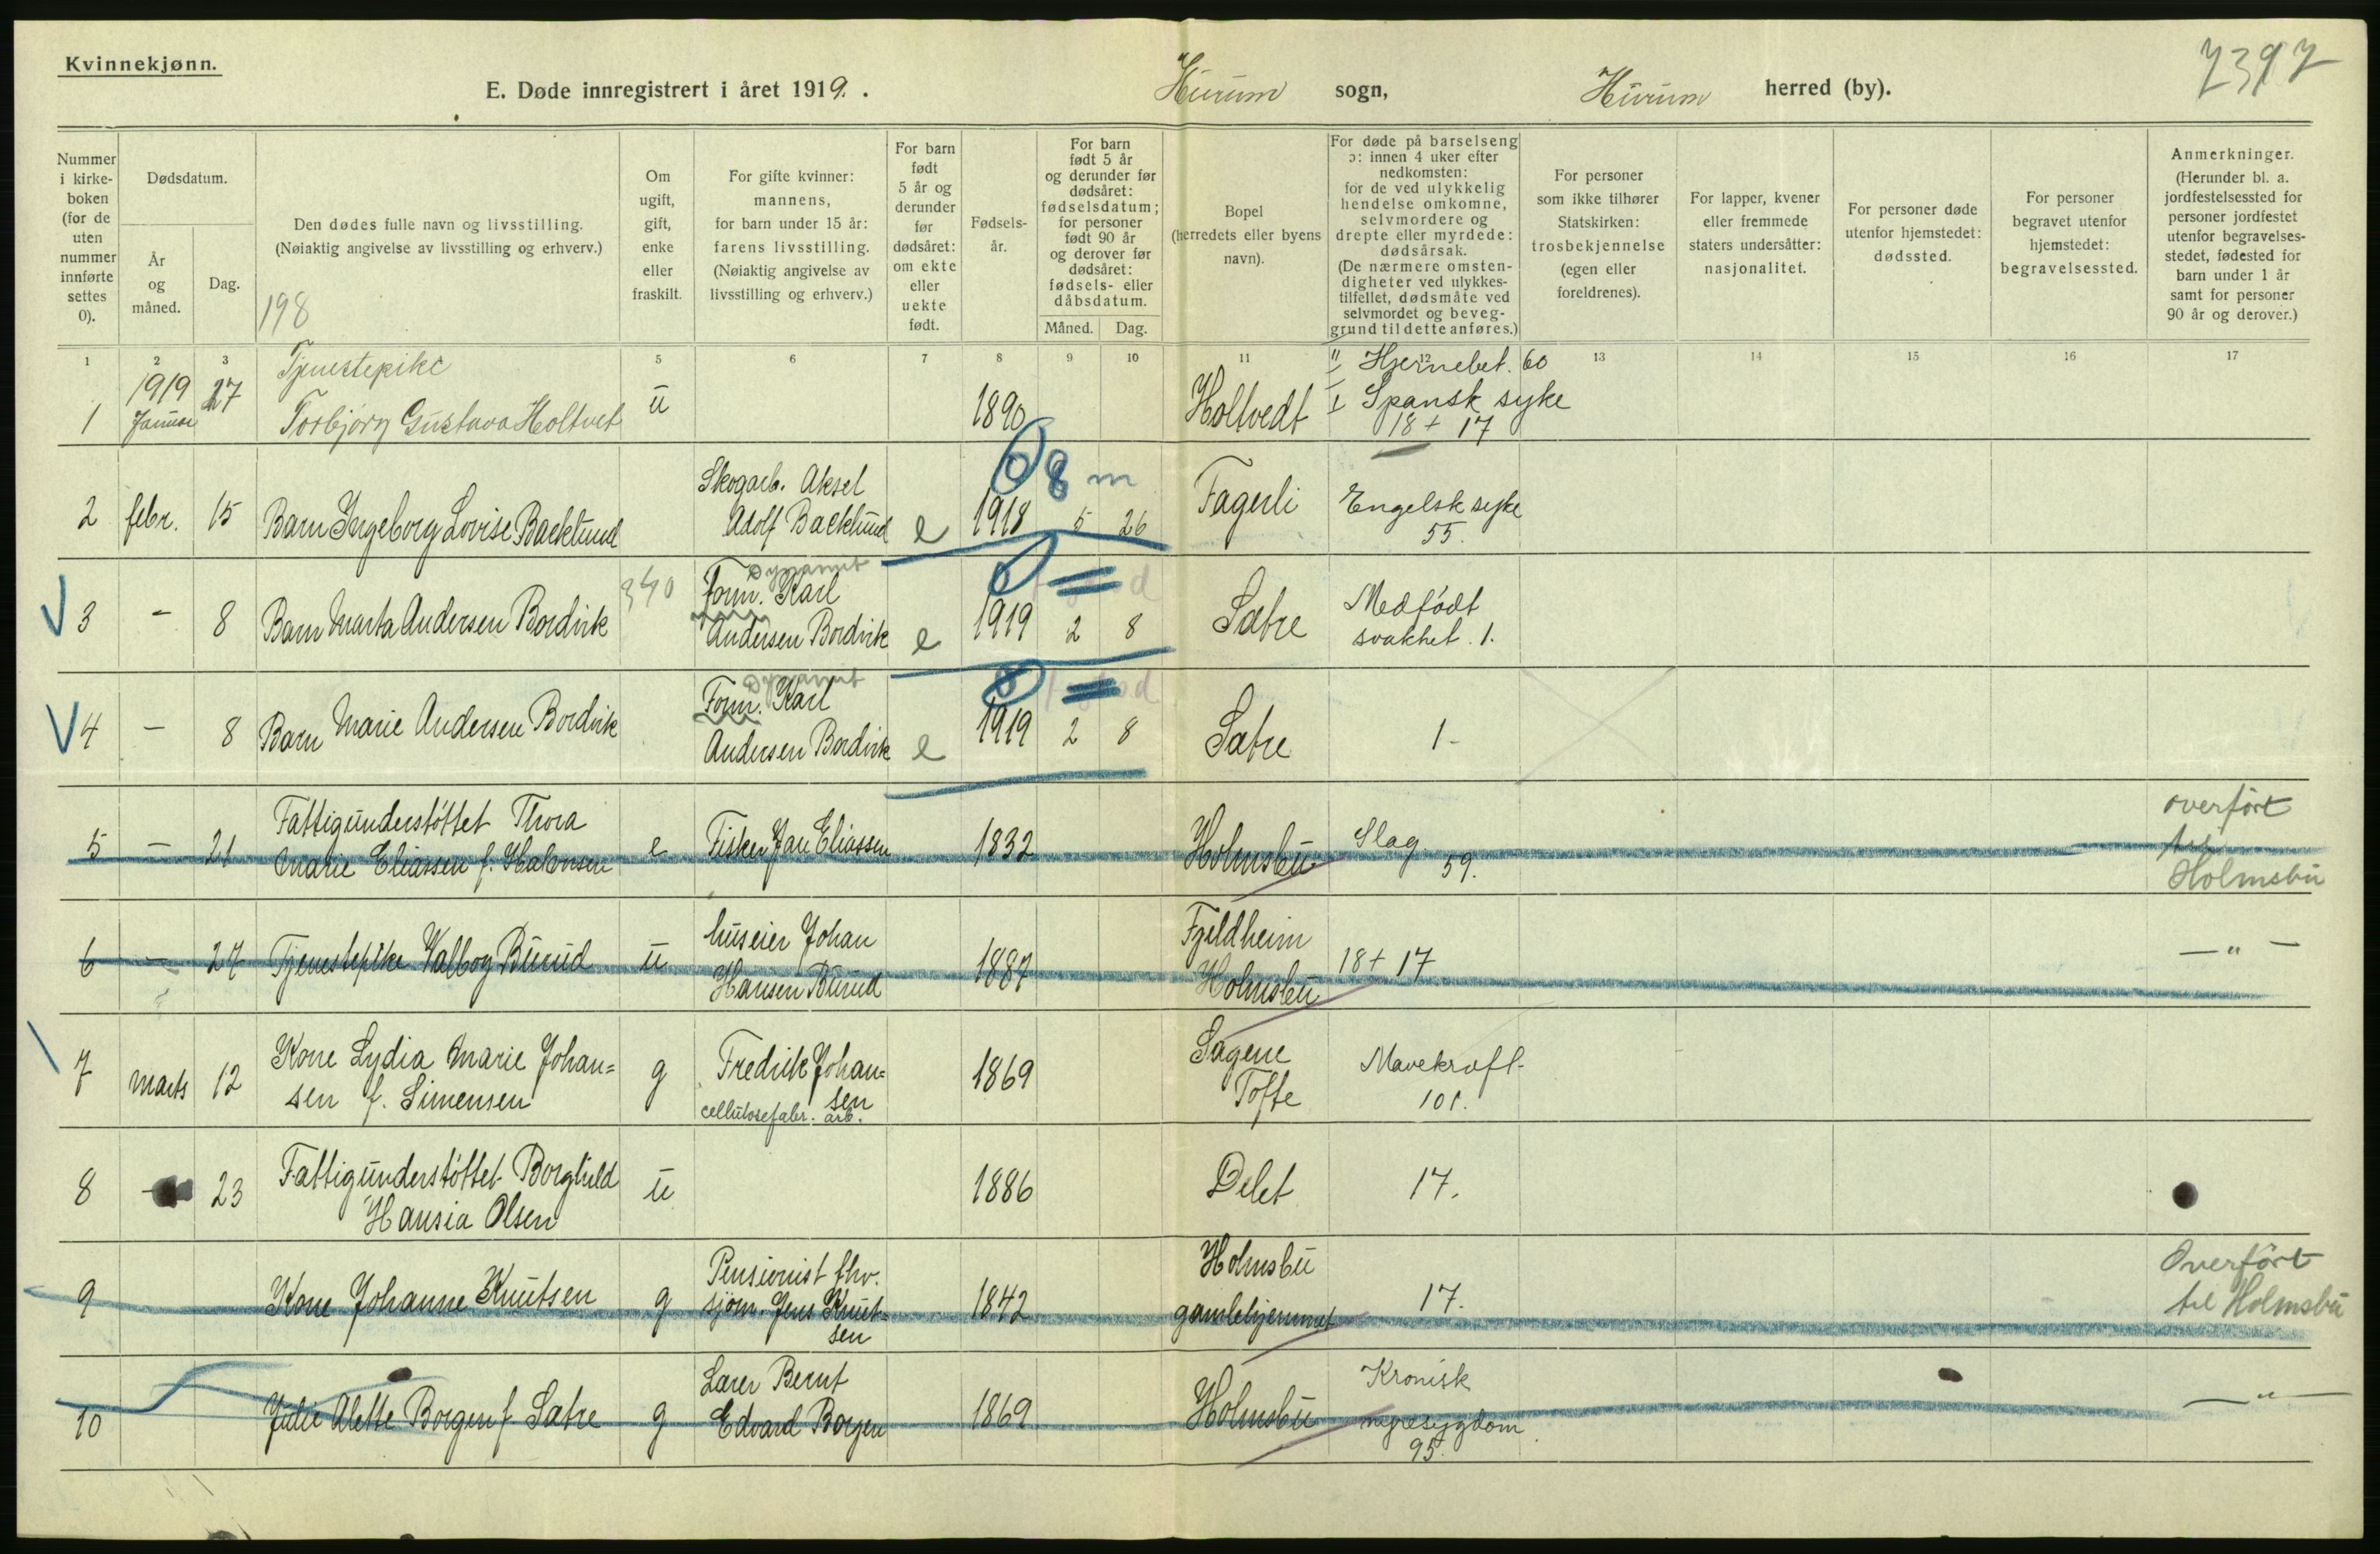 Kvinnekjønn.
7397
E. Døde innregistrert i året 1919. . Hurum sogn, Hurum herred (by).
Nummer
i kirke-
boken
(for de
uten
nummer
innførte
settes
0).
Dødsdatum.
År
og
måned.
Dag.
Den dødes fulle navn og livsstilling.
(Nøiaktig angivelse av livsstilling og erhverv.)
198
Om
ugift,
gift,
enke
eller
fraskilt.
For gifte kvinner:
mannens,
for barn under 15 år:
farens livsstilling.
(Nøiaktig angivelse av
livsstilling og erhverv.)
For barn
født
5 år og
derunder
før
dødsåret:
om ekte
eller
uekte
født.
Fødsels-
år.
For barn
født 5 år
og derunder før
dødsåret:
fødselsdatum;
for personer
født 90 år
og derover før
dødsåret:
fødsels- eller
dåbsdatum.
Måned. Dag.
Bopel
(herredets eller byens
navn).
For døde på barselseng
ɔ: innen 4 uker efter
nedkomsten:
for de ved ulykkelig
hendelse omkomne,
selvmordere og
drepte eller myrdede:
dødsårsak.
(De nærmere omsten-
digheter ved ulykkes-
tilfellet, dødsmåte ved
selvmordet og beveg-
grund til dette anføres.)
For personer
som ikke tilhører
Statskirken:
trosbekjennelse
(egen eller
foreldrenes).
For lapper, kvener
eller fremmede
staters undersåtter:
nasjonalitet.
For personer døde
utenfor hjemstedet:
dødssted.
For personer
begravet utenfor
hjemstedet:
begravelsessted.
Anmerkninger.
(Herunder bl. a.
jordfestelsessted for
personer jordfestet
utenfor begravelses-
stedet, fødested for
barn under 1 år
samt for personer
90 år og derover.)
1 2 3 5 6 7 8 9 10 11 12 13 14 15 16 17
1 1919 Januar 27 Tjenestepike
Torbjørg Gustava Holtvet u 1890 Holtvedt II Hjernebet. 60
I Spansk syke
18 + 17
2 febr. 15 Barn Ingeborg Lovise Backlund Skogarb. Aksel
Adolf Backlund e 1918 5 26 8 m Fagerli Engelsk syke
55.
3 - 8 Barn Marta Andersen Bordvik 340 Dynamit
Form. Karl
Andersen Bordvik e 1919 2 8 Sætre Medfødt
svakhet. 1.
4 - 8 Barn Marie Andersen Bordvik Dynamit
Form. Karl
Andersen Bordvik e 1919 2 8 Sætre 1-
5 - 21 Fattigunderstøttet Thora
Marie Eliassen f. Hakonsen e Fisker Jan Eliassen 1832 Holmsbu Slag 59. overført
til
Holmsbu
6 - 27 Tjenestepike Valbog Burud u huseier Johan
Hansen Burud 1887 Fjeldheim
Holmsbu 18 + 17 - " -
7 marts 12 Kone Lydia Marie Johan=
sen f. Simensen g Fredrik Johan=
sen
cellulosefabr. arb. 1869 Sagene
Tofte Mavekræft-
101.
8 - 23 Fattigunderstøttet Borghild
Hansia Olsen u 1886 Delet 17.
9 Kone Johanne Knutsen g Pensionist fhv.
sjøm. Jens Knut=
sen 1842 Holmsbu
gamlehjemmet 17. Overført
til Holmsbu
10 Julie Alette Borgen f Sætre g Lærer Bernt
Edvard Borgen 1869 Holmsbu Kronisk
nyresygdom
95. - " -